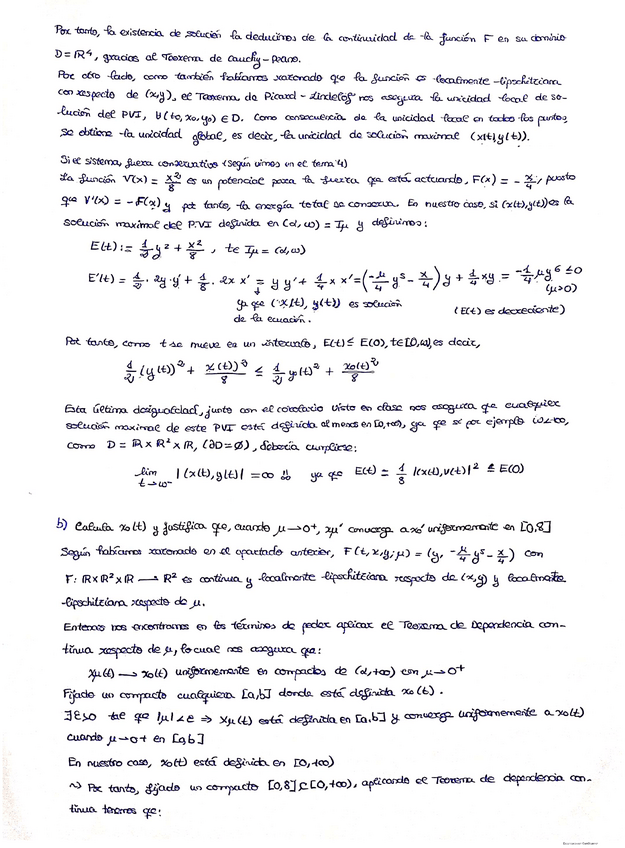 Por tanto, la existencia de solución la deducimos de la continuidad de la función F en su dominio
D=ℝ⁴, gracias al Teorema de Cauchy-Peano.
Por otro lado, como también habíamos razonado que la función es localmente-lipschitziana
con respecto de (x,y), el Teorema de Picard-Lindelöf nos asegura la unicidad local de so-
lución del PVI, ∀(t0,x0,y0) ∈ D. Como consecuencia de la unicidad local en todos los puntos,
se obtiene la unicidad global, es decir, la unicidad de solución maximal (x(t),y(t)).
Si el sistema, fuera conservativo (según vimos en el tema 4)
La función V(x) = x²/8 es un potencial para la fuerza que está actuando, F(x) = -x/4, puesto
que V'(x) = -F(x) y por tanto, la energía total se conserva. En nuestro caso, si (x(t),y(t)) es la
solución maximal del PVI definida en (α,ω) = Iμ y definimos:
E(t) := 1/2 y² + x²/8 , t∈ Iμ = (α,ω)
E'(t) = 1/2 · 2y·y' + 1/8 · 2x x' = y y' + 1/4 x x' = (-μ/4 y⁵ - x/4) y + 1/4 xy = -1/4 μy⁶ ≤0
ya que (x(t), y(t)) es solución (μ>0)
de la ecuación. (E(t) es decreciente)
Por tanto, como t se mueve en un intervalo, E(t) ≤ E(0), t∈[0,ω) es decir,
1/2 (y(t))² + (x(t))²/8 ≤ 1/2 y0(t)² + x0(t)²/8
Esta última desigualdad, junto con el corolario visto en clase nos asegura que cualquier
solución maximal de este PVI está definida al menos en [0,+∞), ya que si por ejemplo ω<+∞,
como D = ℝ × ℝ² × ℝ, (∂D=∅), debería cumplirse:
lim t→ω⁻ |(x(t),y(t)| = ∞ !! ya que E(t) = 1/8 |(x(t),y(t)|² ≤ E(0)
b) Calcula x0(t) y justifica que, cuando μ→0⁺, xμ' converge a x0' uniformemente en [0,8]
Según habíamos razonado en el apartado anterior, F(t,x,y;μ) = (y, -μ/4 y⁵ - x/4) con
F: ℝ×ℝ²×ℝ → ℝ² es continua y localmente lipschitziana respecto de (x,y) y localmente
lipschitziana respecto de μ.
Entonces nos encontramos en los términos de poder aplicar el Teorema de Dependencia con-
tinua respecto de μ, lo cual nos asegura que:
xμ(t) → x0(t) uniformemente en compactos de (α,+∞) con μ→0⁺
Fijado un compacto cualquiera [a,b] donde está definida x0(t).
∃ε>0 tal que |μ|<ε ⇒ xμ(t) está definida en [a,b] y converge uniformemente a x0(t)
cuando μ→0+ en [a,b]
En nuestro caso, x0(t) está definida en [0,+∞)
~> Por tanto, fijado un compacto [0,8]⊂[0,+∞), aplicando el Teorema de dependencia con-
tinua tenemos que: